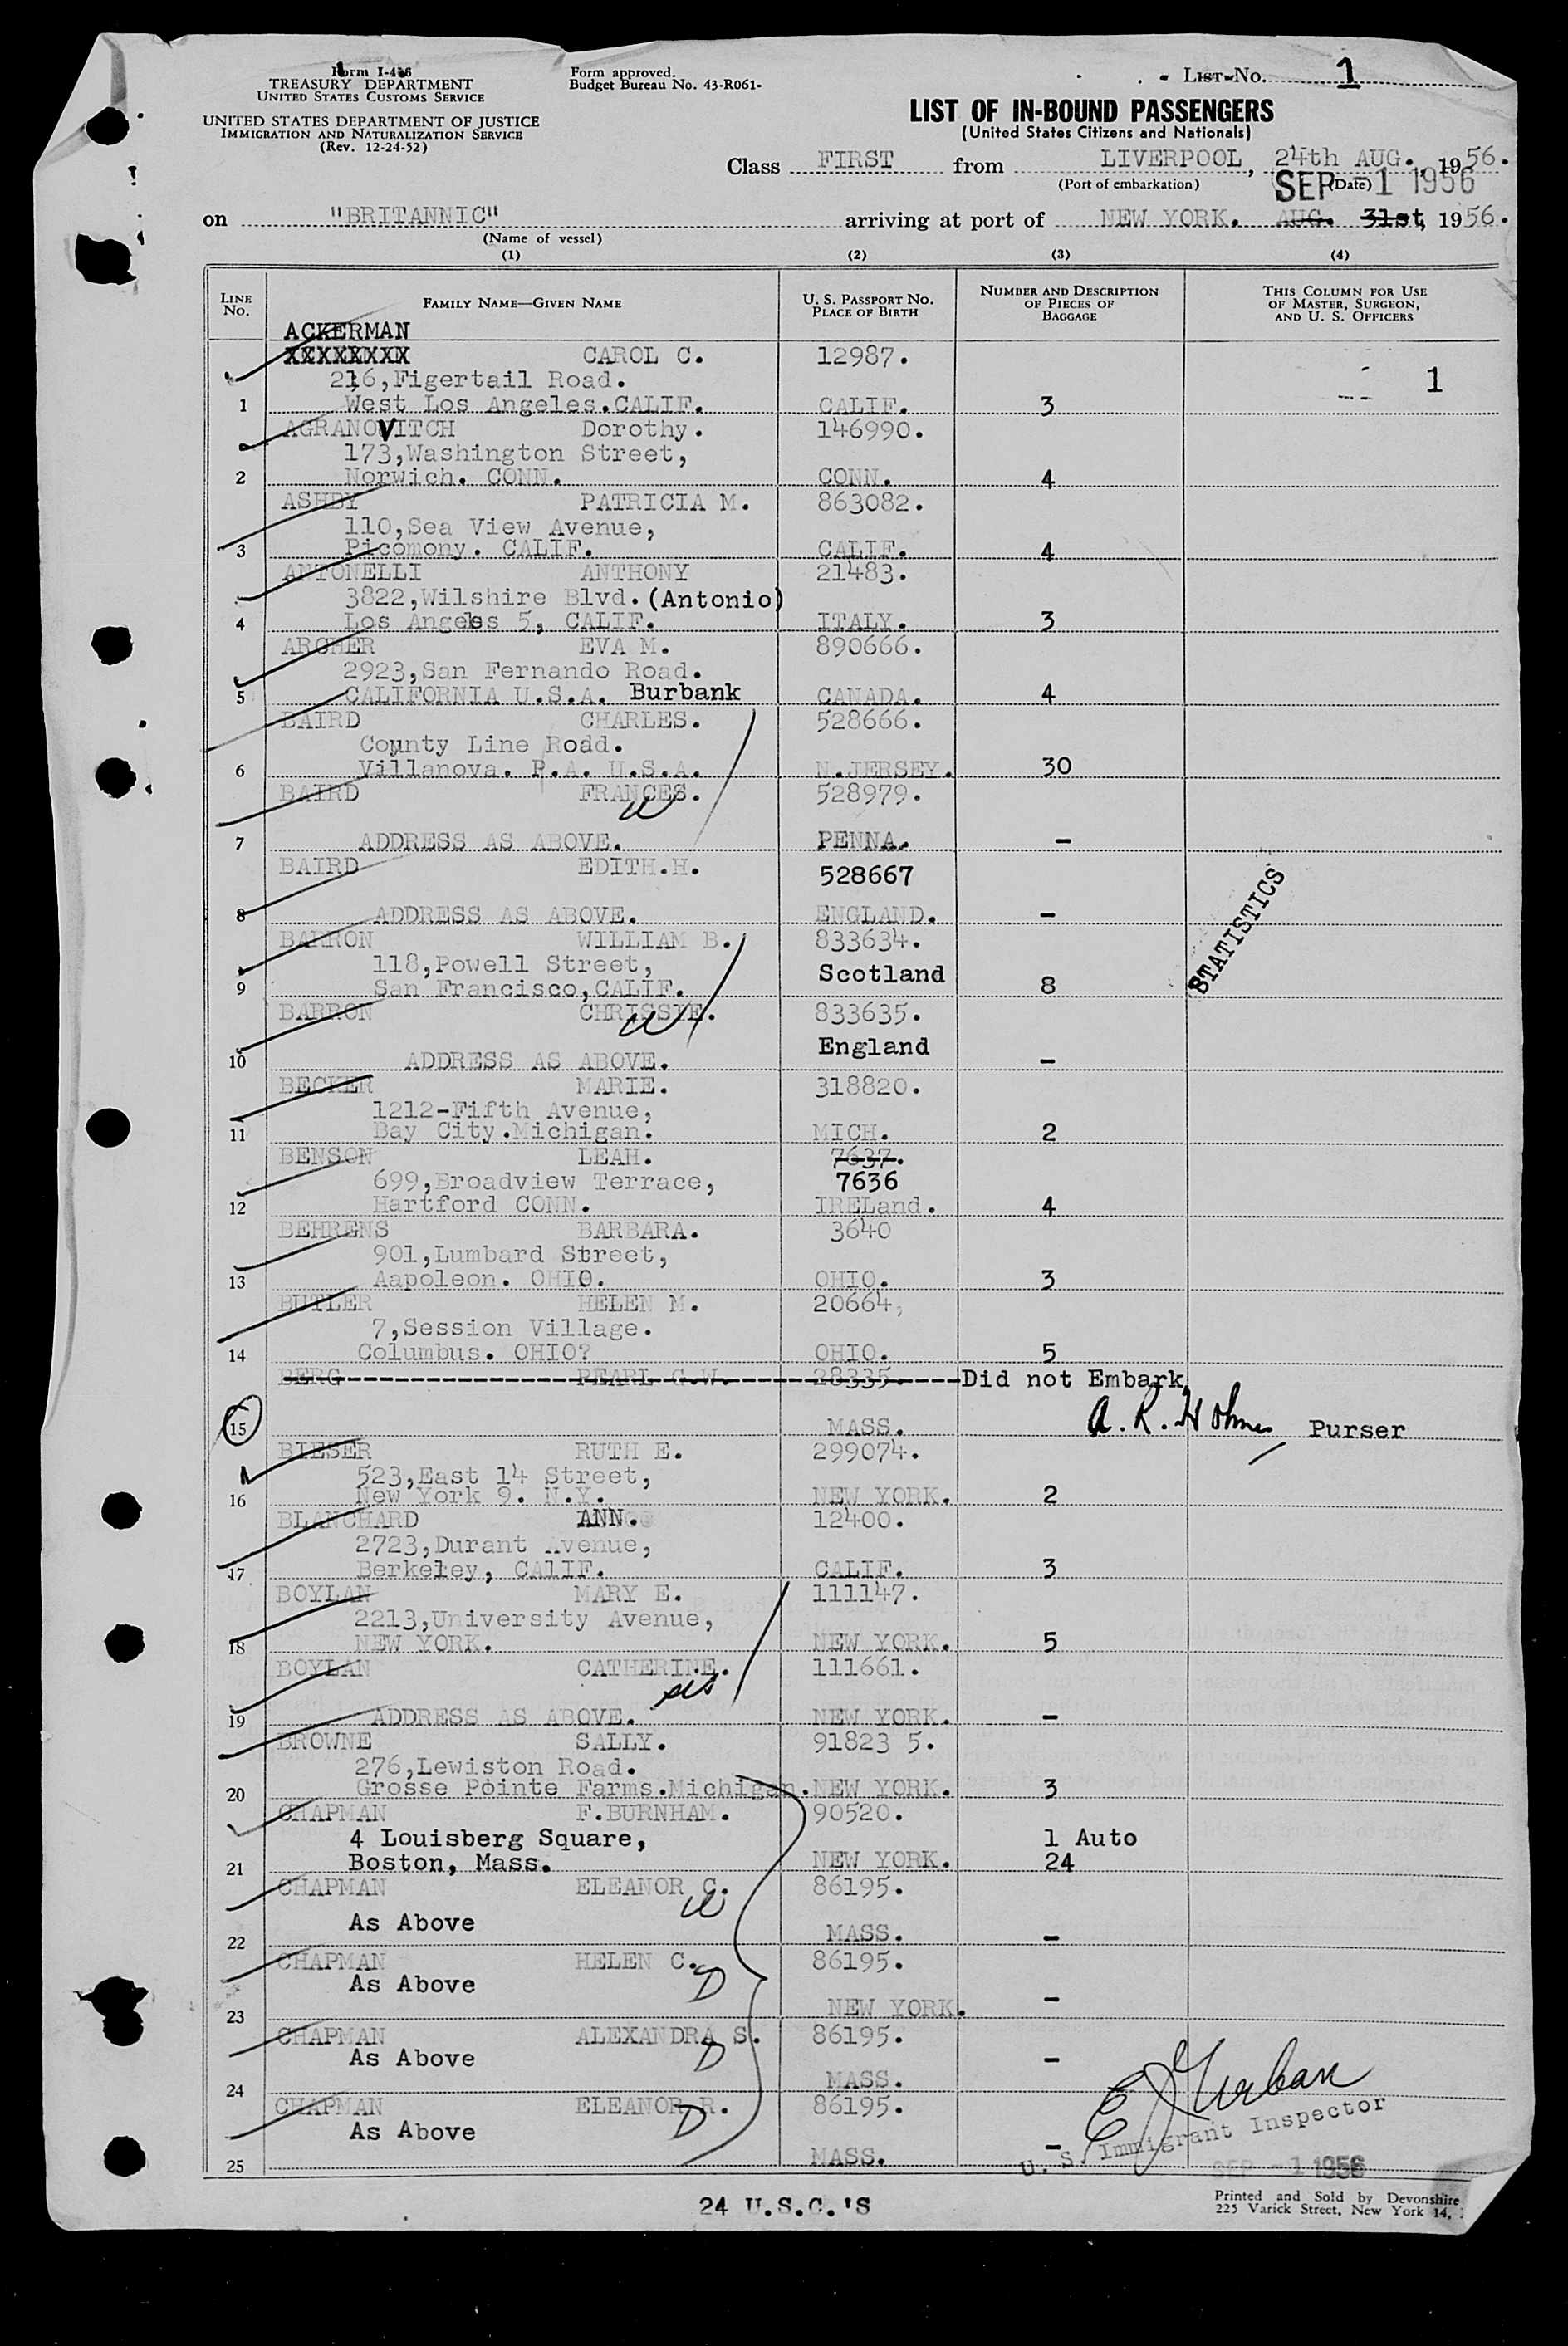 Form I-416
TREASURY DEPARTMENT
UNITED STATES CUSTOMS SERVICE
UNITED STATES DEPARTMENT OF JUSTICE
IMMIGRATION AND NATURALIZATION SERVICE
(Rev. 12-24-52)
Form approved.
Budget Bureau No. 43-R061-
LIST No. 1
LIST OF IN-BOUND PASSENGERS
(United States Citizens and Nationals)
Class FIRST from LIVERPOOL, 24th AUG., 1956.
(Port of embarkation) (Date)
SEP -1 1956
on "BRITANNIC" arriving at port of NEW YORK. AUG. 31st, 1956.
(Name of vessel)
(1) (2) (3) (4)
LINE No. FAMILY NAME—GIVEN NAME U. S. PASSPORT NO. PLACE OF BIRTH NUMBER AND DESCRIPTION OF PIECES OF BAGGAGE THIS COLUMN FOR USE OF MASTER, SURGEON, AND U. S. OFFICERS
ACKERMAN
XXXXXXXX CAROL C. 12987.
216,Figertail Road. 1
1 West Los Angeles.CALIF. CALIF. 3
AGRANOVITCH Dorothy. 146990.
173,Washington Street,
2 Norwich. CONN. CONN. 4
ASHBY PATRICIA M. 863082.
110,Sea View Avenue,
3 Picomony. CALIF. CALIF. 4
ANTONELLI ANTHONY 21483.
3822,Wilshire Blvd. (Antonio)
4 Los Angeles 5, CALIF. ITALY. 3
ARCHER EVA M. 890666.
2923,San Fernando Road.
5 CALIFORNIA U.S.A. Burbank CANADA. 4
BAIRD CHARLES. 528666.
County Line Road.
6 Villanova. P.A. U.S.A. N.JERSEY. 30
BAIRD FRANCES. 528979.
W
7 ADDRESS AS ABOVE. PENNA. -
BAIRD EDITH.H. 528667
8 ADDRESS AS ABOVE. ENGLAND. -
STATISTICS
BARRON WILLIAM B. 833634.
118,Powell Street, Scotland
9 San Francisco,CALIF. 8
BARRON CHRISSIE. 833635.
W
England
10 ADDRESS AS ABOVE. -
BECKER MARIE. 318820.
1212-Fifth Avenue,
11 Bay City.Michigan. MICH. 2
BENSON LEAH. 7637.
699,Broadview Terrace, 7636
12 Hartford CONN. IRELand. 4
BEHRENS BARBARA. 3640
901,Lumbard Street,
13 Aapoleon. OHIO. OHIO. 3
BUTLER HELEN M. 20664,
7,Session Village.
14 Columbus. OHIO? OHIO. 5
BERG PEARL G.W. 28335. Did not Embark
15 MASS. A. R. Holmes Purser
BIESER RUTH E. 299074.
523,East 14 Street,
16 New York 9. N.Y. NEW YORK. 2
BLANCHARD ANN. 12400.
2723,Durant Avenue,
17 Berkeley, CAlIF. CALIF. 3
BOYLAN MARY E. 111147.
2213,University Avenue,
18 NEW YORK. NEW YORK. 5
BOYLAN CATHERINE. 111661.
sis
19 ADDRESS AS ABOVE. NEW YORK. -
BROWNE SALLY. 91823 5.
276,Lewiston Road.
20 Grosse Pointe Farms.Michigan. NEW YORK. 3
CHAPMAN F.BURNHAM. 90520.
4 Louisberg Square, 1 Auto
21 Boston, Mass. NEW YORK. 24
CHAPMAN ELEANOR C. 86195.
W
As Above
22 MASS. -
CHAPMAN HELEN C. 86195.
As Above D
23 NEW YORK. -
CHAPMAN ALEXANDRA S. 86195.
As Above D
24 MASS. -
CHAPMAN ELEANOR R. 86195.
As Above D
25 MASS. -
E J Urban
U. S. Immigrant Inspector
SEP -1 1956
24 U.S.C.'S
Printed and Sold by Devonshire
225 Varick Street, New York 14,